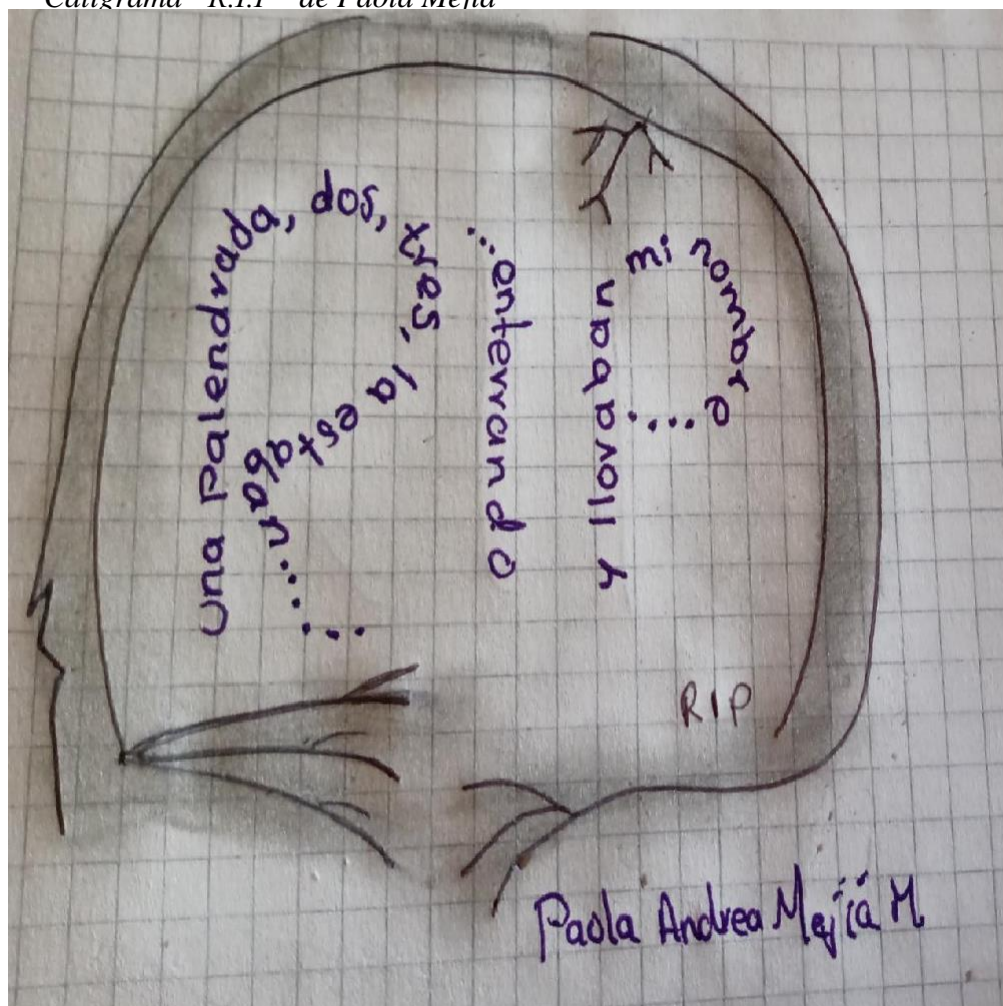 Caligrama "R.I.P" de Paola Mejía
una Palendrada, dos, tres, la estaban.......
...enterrando
y lloraban mi nombre ....
RIP
Paola Andrea Mejía M